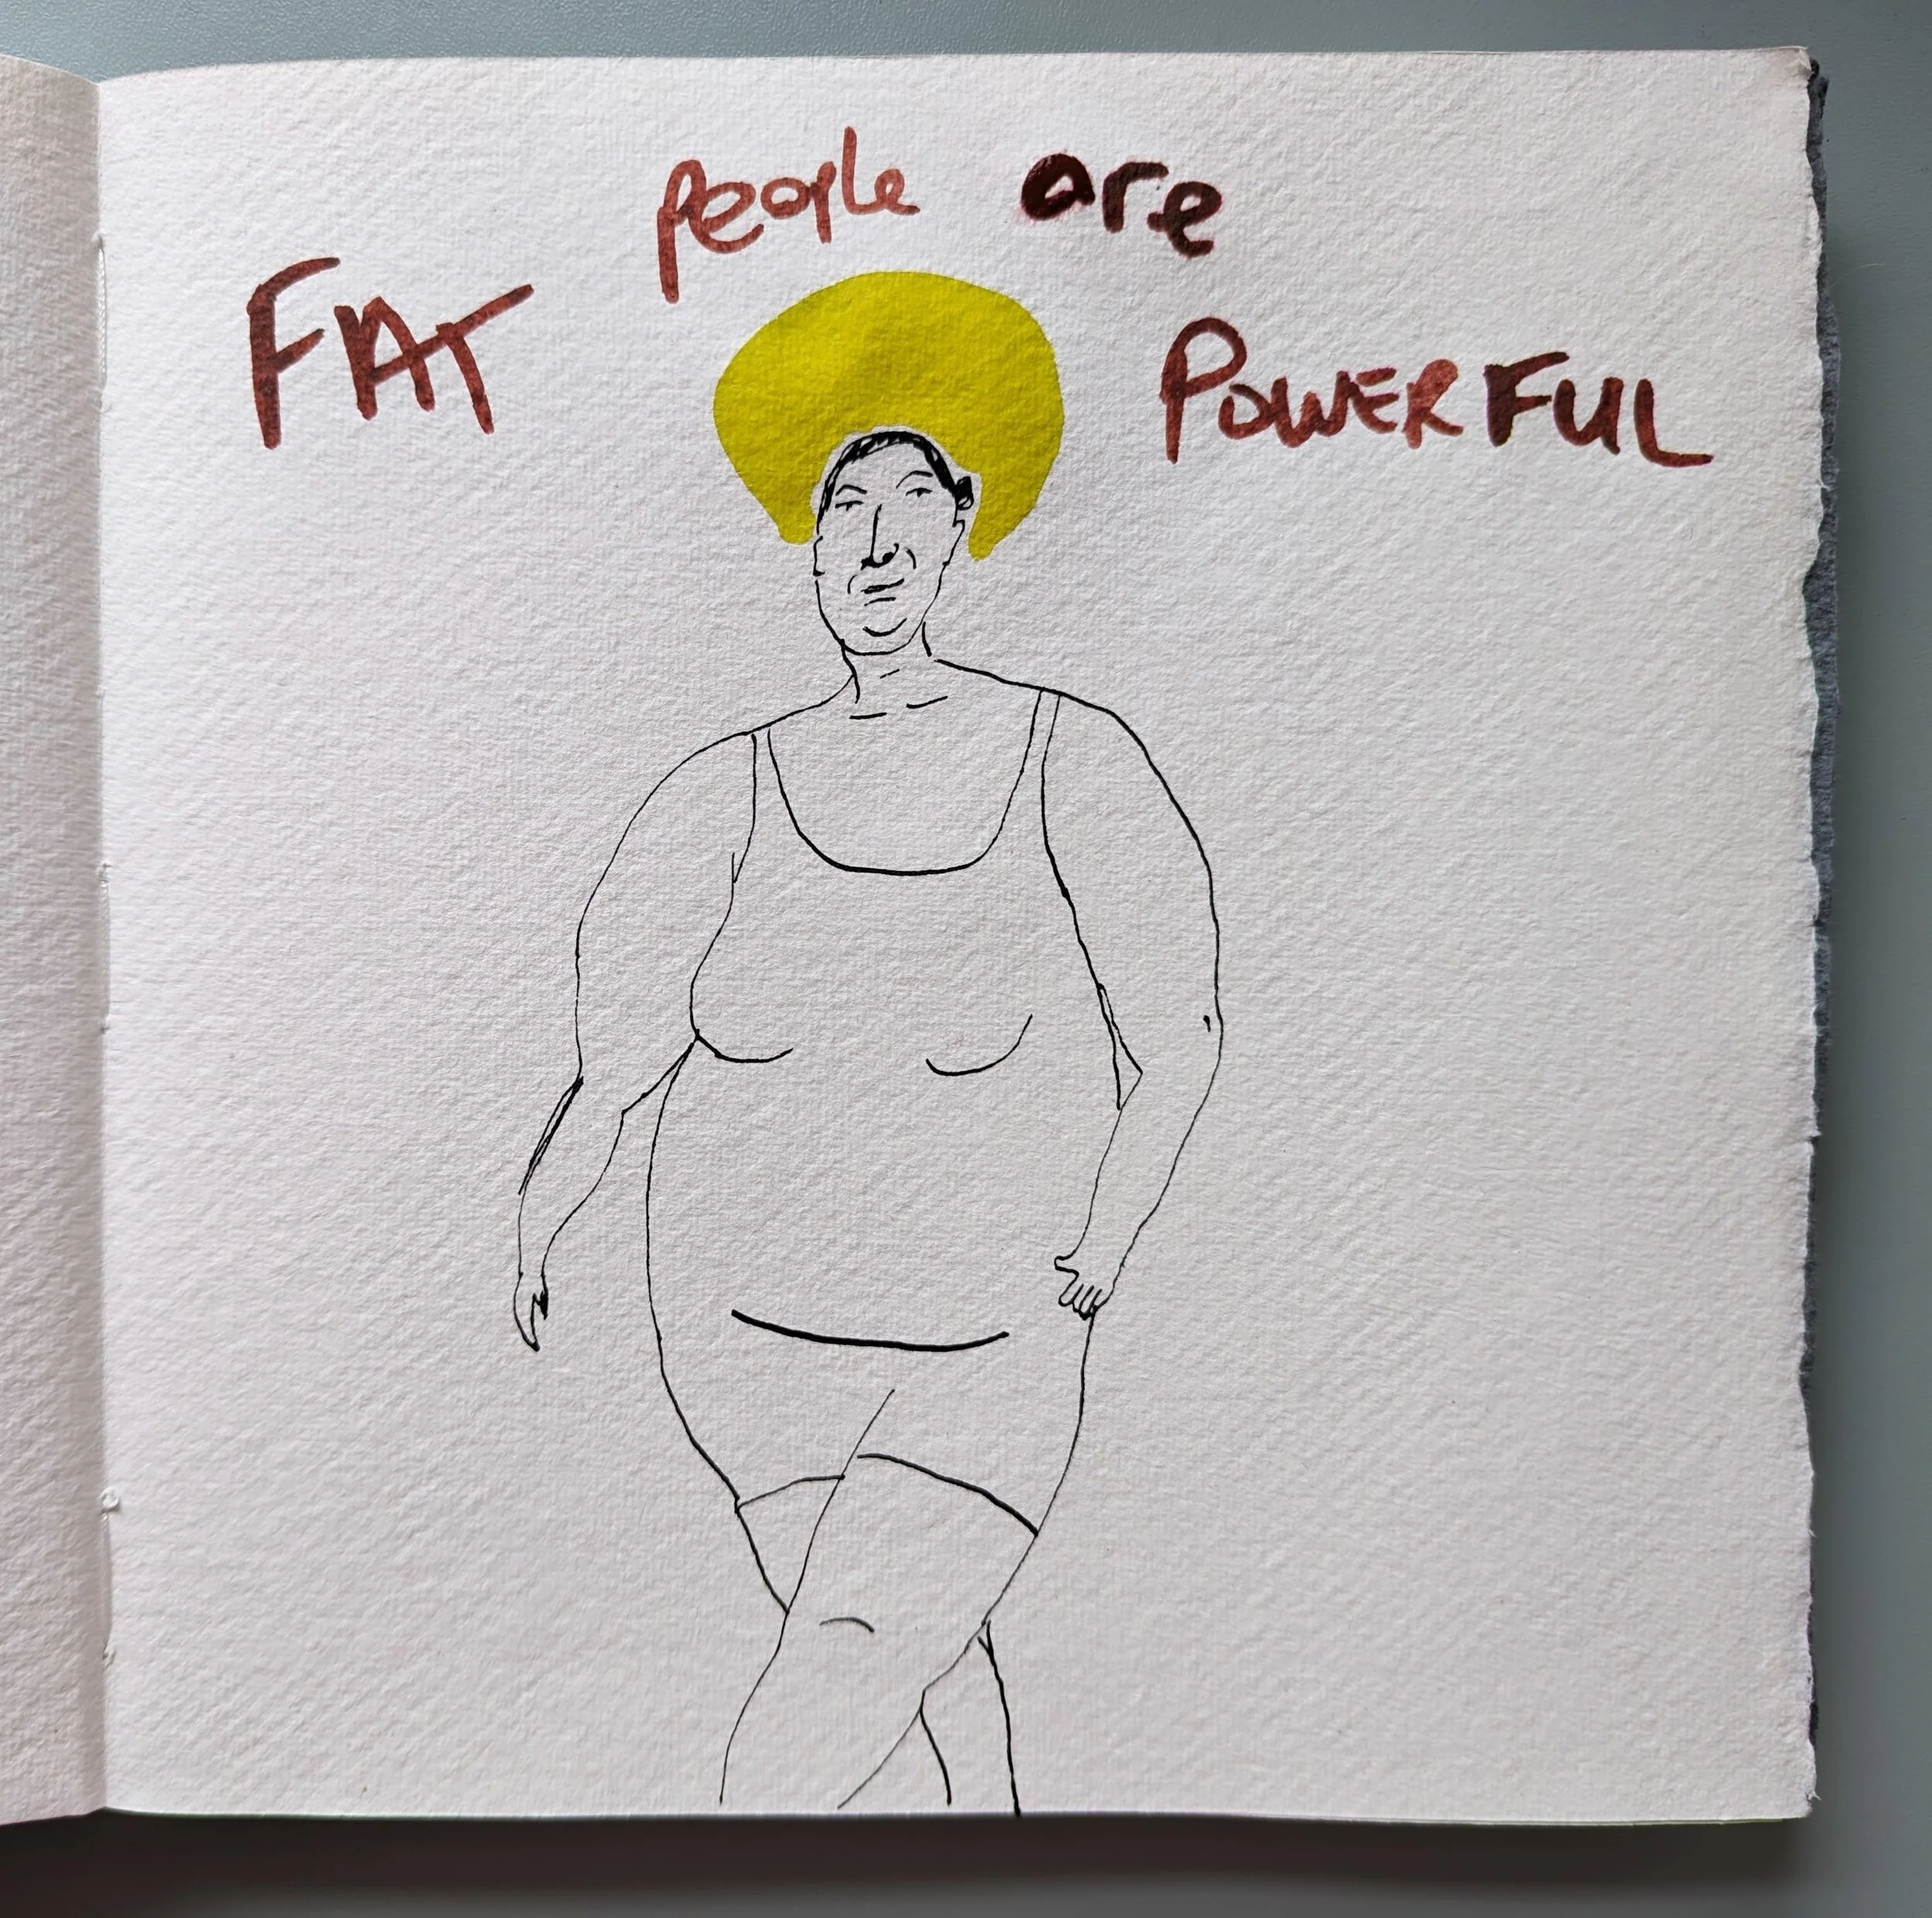 FAT people are POWERFUL